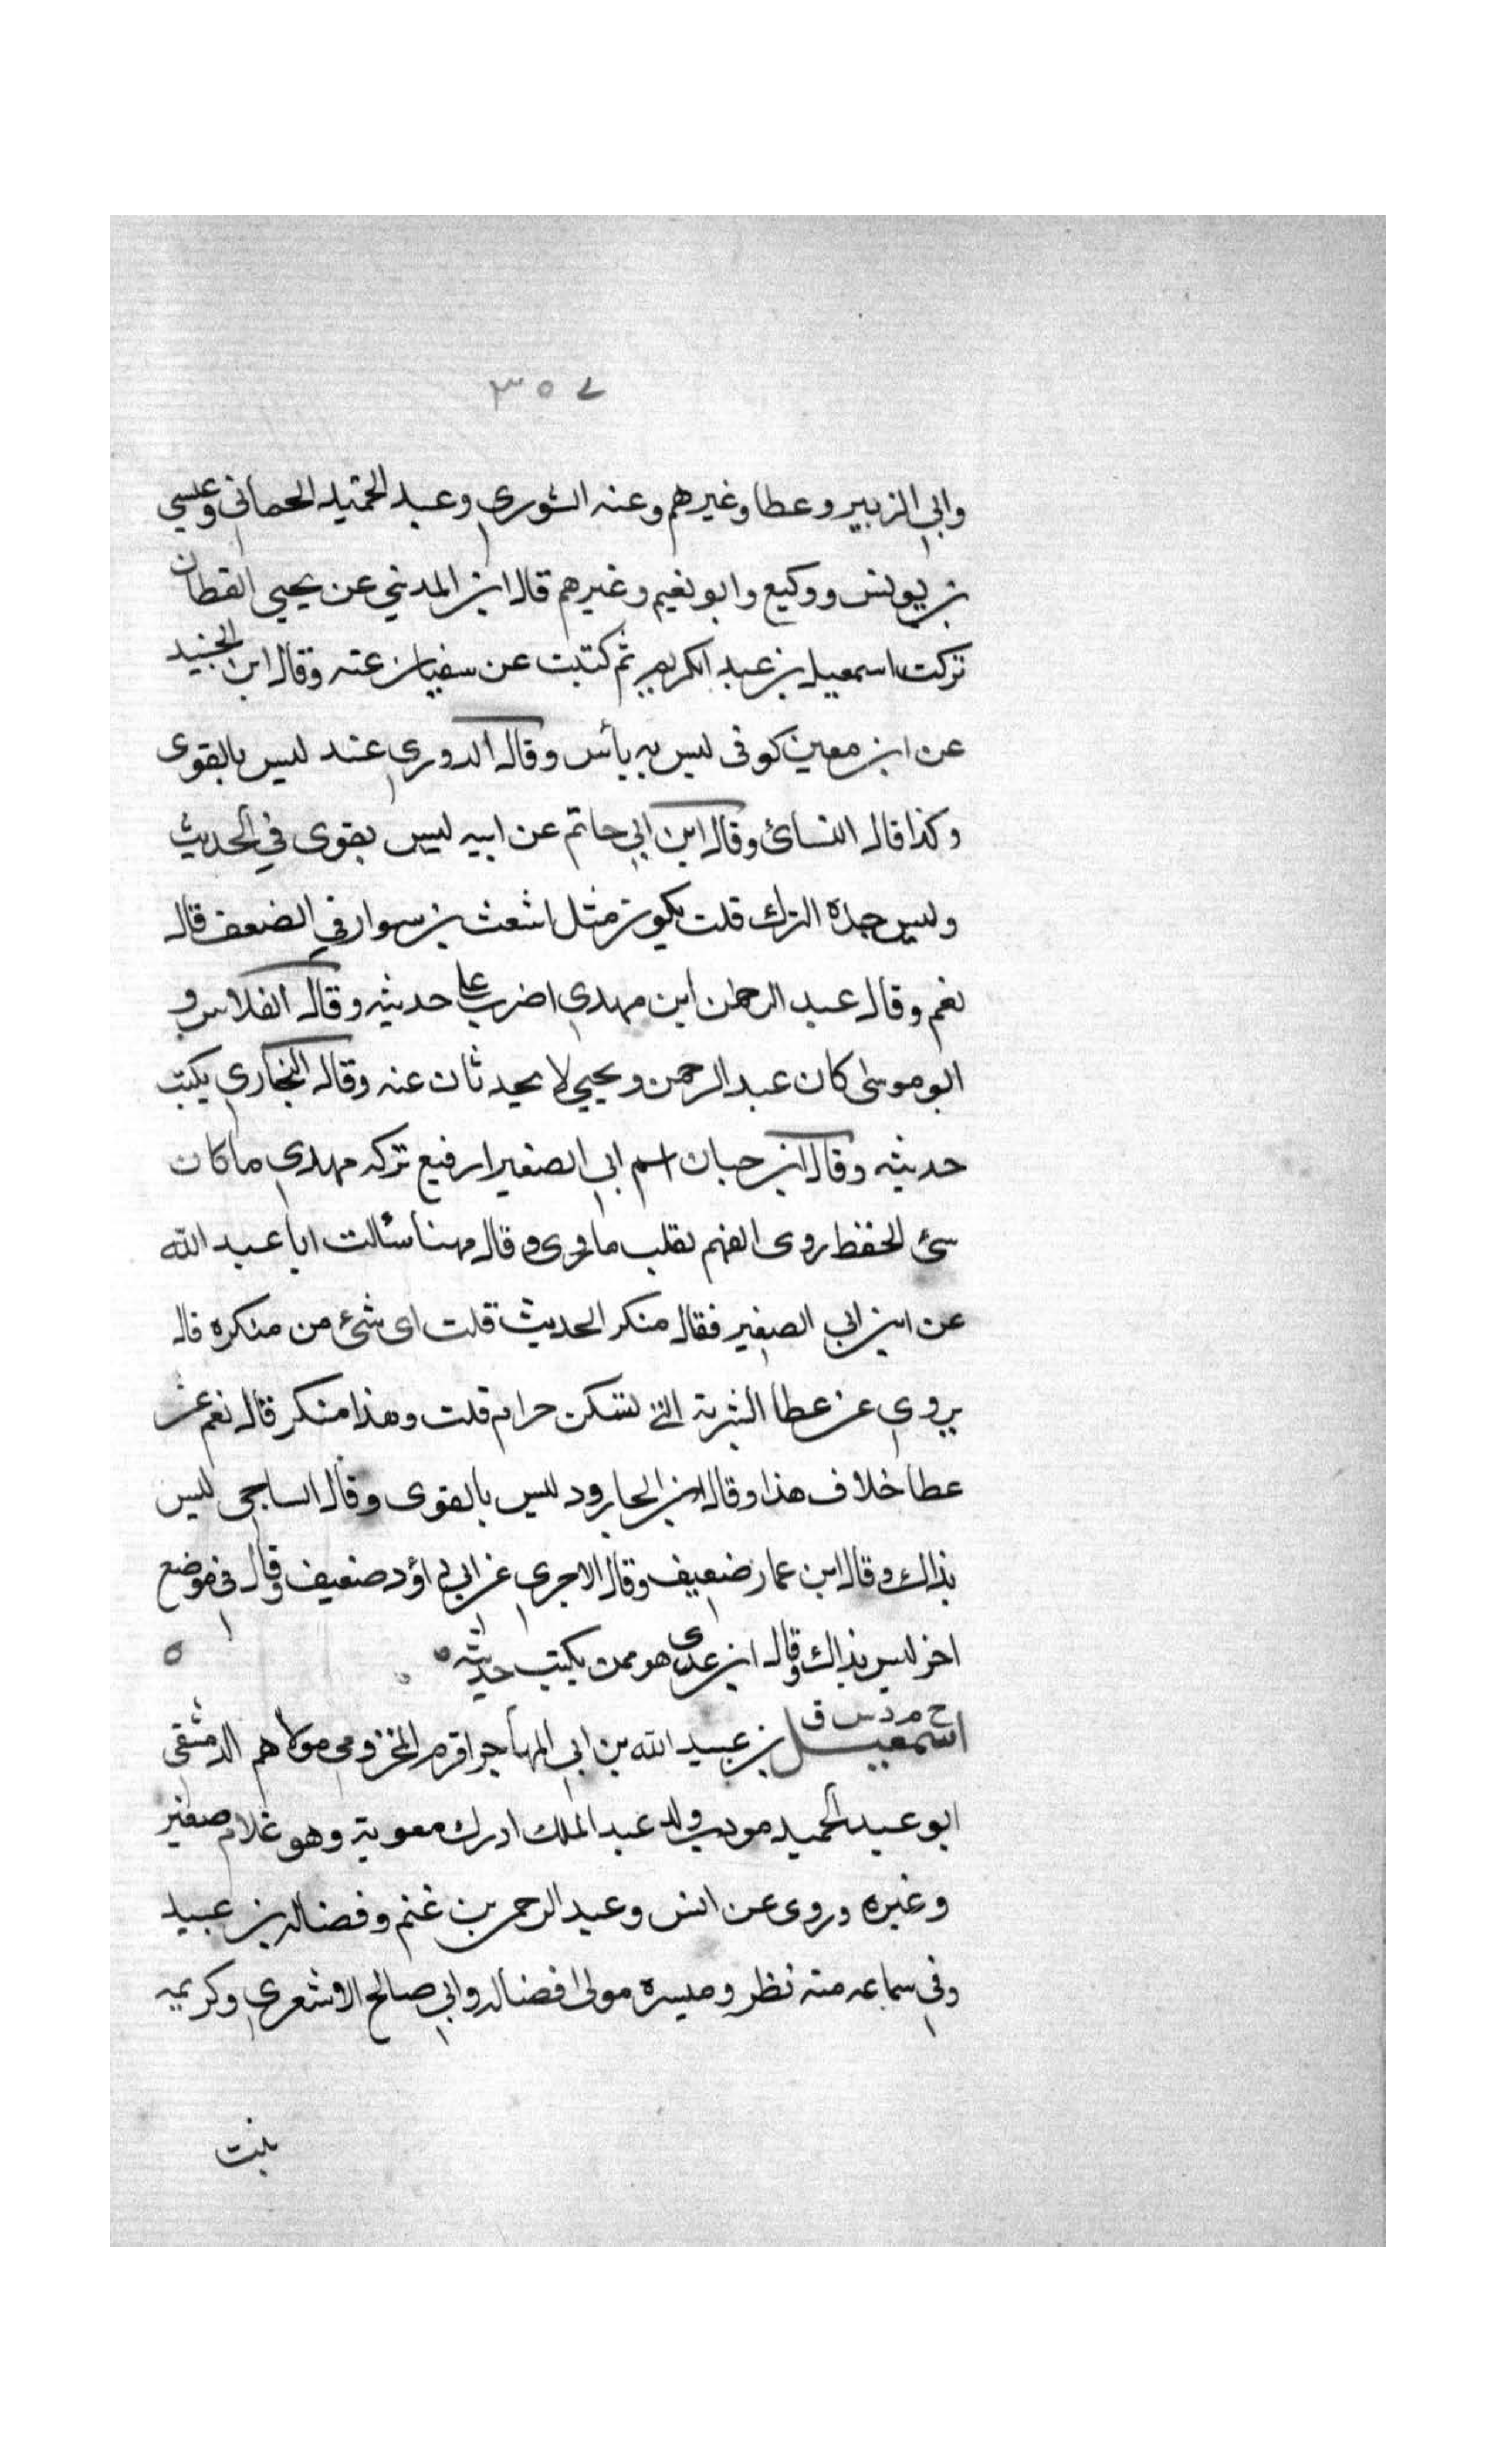 ٣٥٧
وابي الزبير وعطا وغيرهم وعنه الثوري وعبد الحميد الحماني وعيسي
بن يونس ووكيع وابو نعيم وغيرهم قال ابن المديني عن يحيي القطان
تركت اسمعيل بن عبد الكريم ثم كتبت عن سفيان عنه وقال ابن الجنيد
عن ابن معين كوفى ليس به بأس وقال الدوري عند ليس بالقوى
وكذا قال النسائ وقال ابن ابي حاتم عن ابيه ليس بقوى في الحديث
وليس حده الترك قلت يكون مثل اشعث بن سوار في الضعف قال
نعم وقال عبد الرحمن ابن مهدي اضرب علي حديثه وقال الفلاس و
ابو موسى كان عبد الرحمن ويحيي لا يحدثان عنه وقال البخاري يكتب
حديثه وقال ابن حبان اسم ابي الصغيرا رفيع تركه مهدي ما كان
سئ الحفظ روى الفهم يقلب ما روى وقال مهنا سألت ابا عبد الله
عن ابن ابي الصغير فقال منكر الحديث قلت اى شئ من منكره قال
يروي عن عطا الشربة التي تسكن حرام قلت وهذا منكر قال نعم عن
عطا خلاف هذا وقال ابن الجارود ليس بالقوى وقال الساجى ليس
بذاك وقال ابن عمار ضعيف وقال الاجري عن ابي داؤد ضعيف وقال فى موضع
اخر ليس بذاك وقال ابن عدى هو ممن يكتب حديثه
خ م د س ق
اسمعيل بن عبيد الله بن ابي المهاجر اقرم المخزومي مولاهم الدمشقى
ابو عبد الحميد مودب ولد عبد الملك ادرك معوية وهو غلام صغير
وغيره وروى عن انس وعبد الرحمن بن غنم وفضاله بن عبيد
وفي سماعه منه نظر وميسره مولى فضاله وابي صالح الاشعري وكريمه
بنت